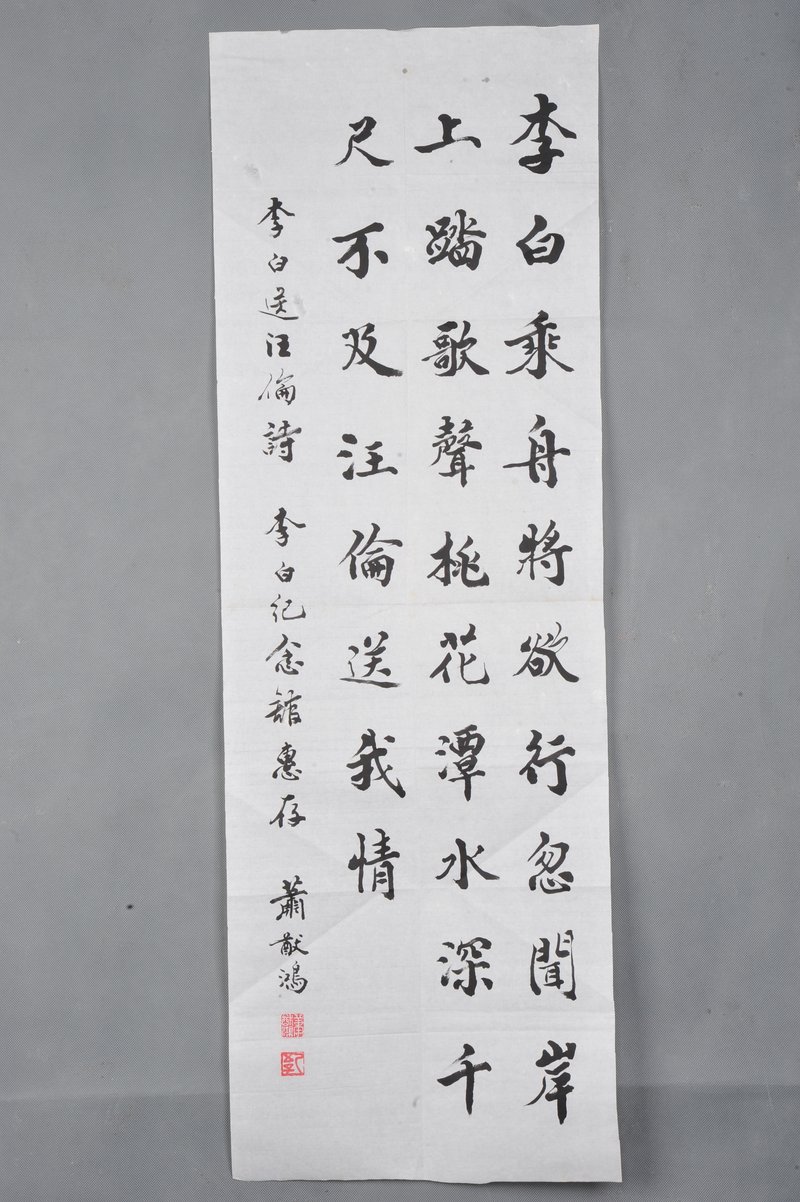 李白乘舟將欲行忽聞岸
上踏歌聲桃花潭水深千
尺不及汪倫送我情
李白送汪倫詩 李白紀念館惠存 蕭猷鴻